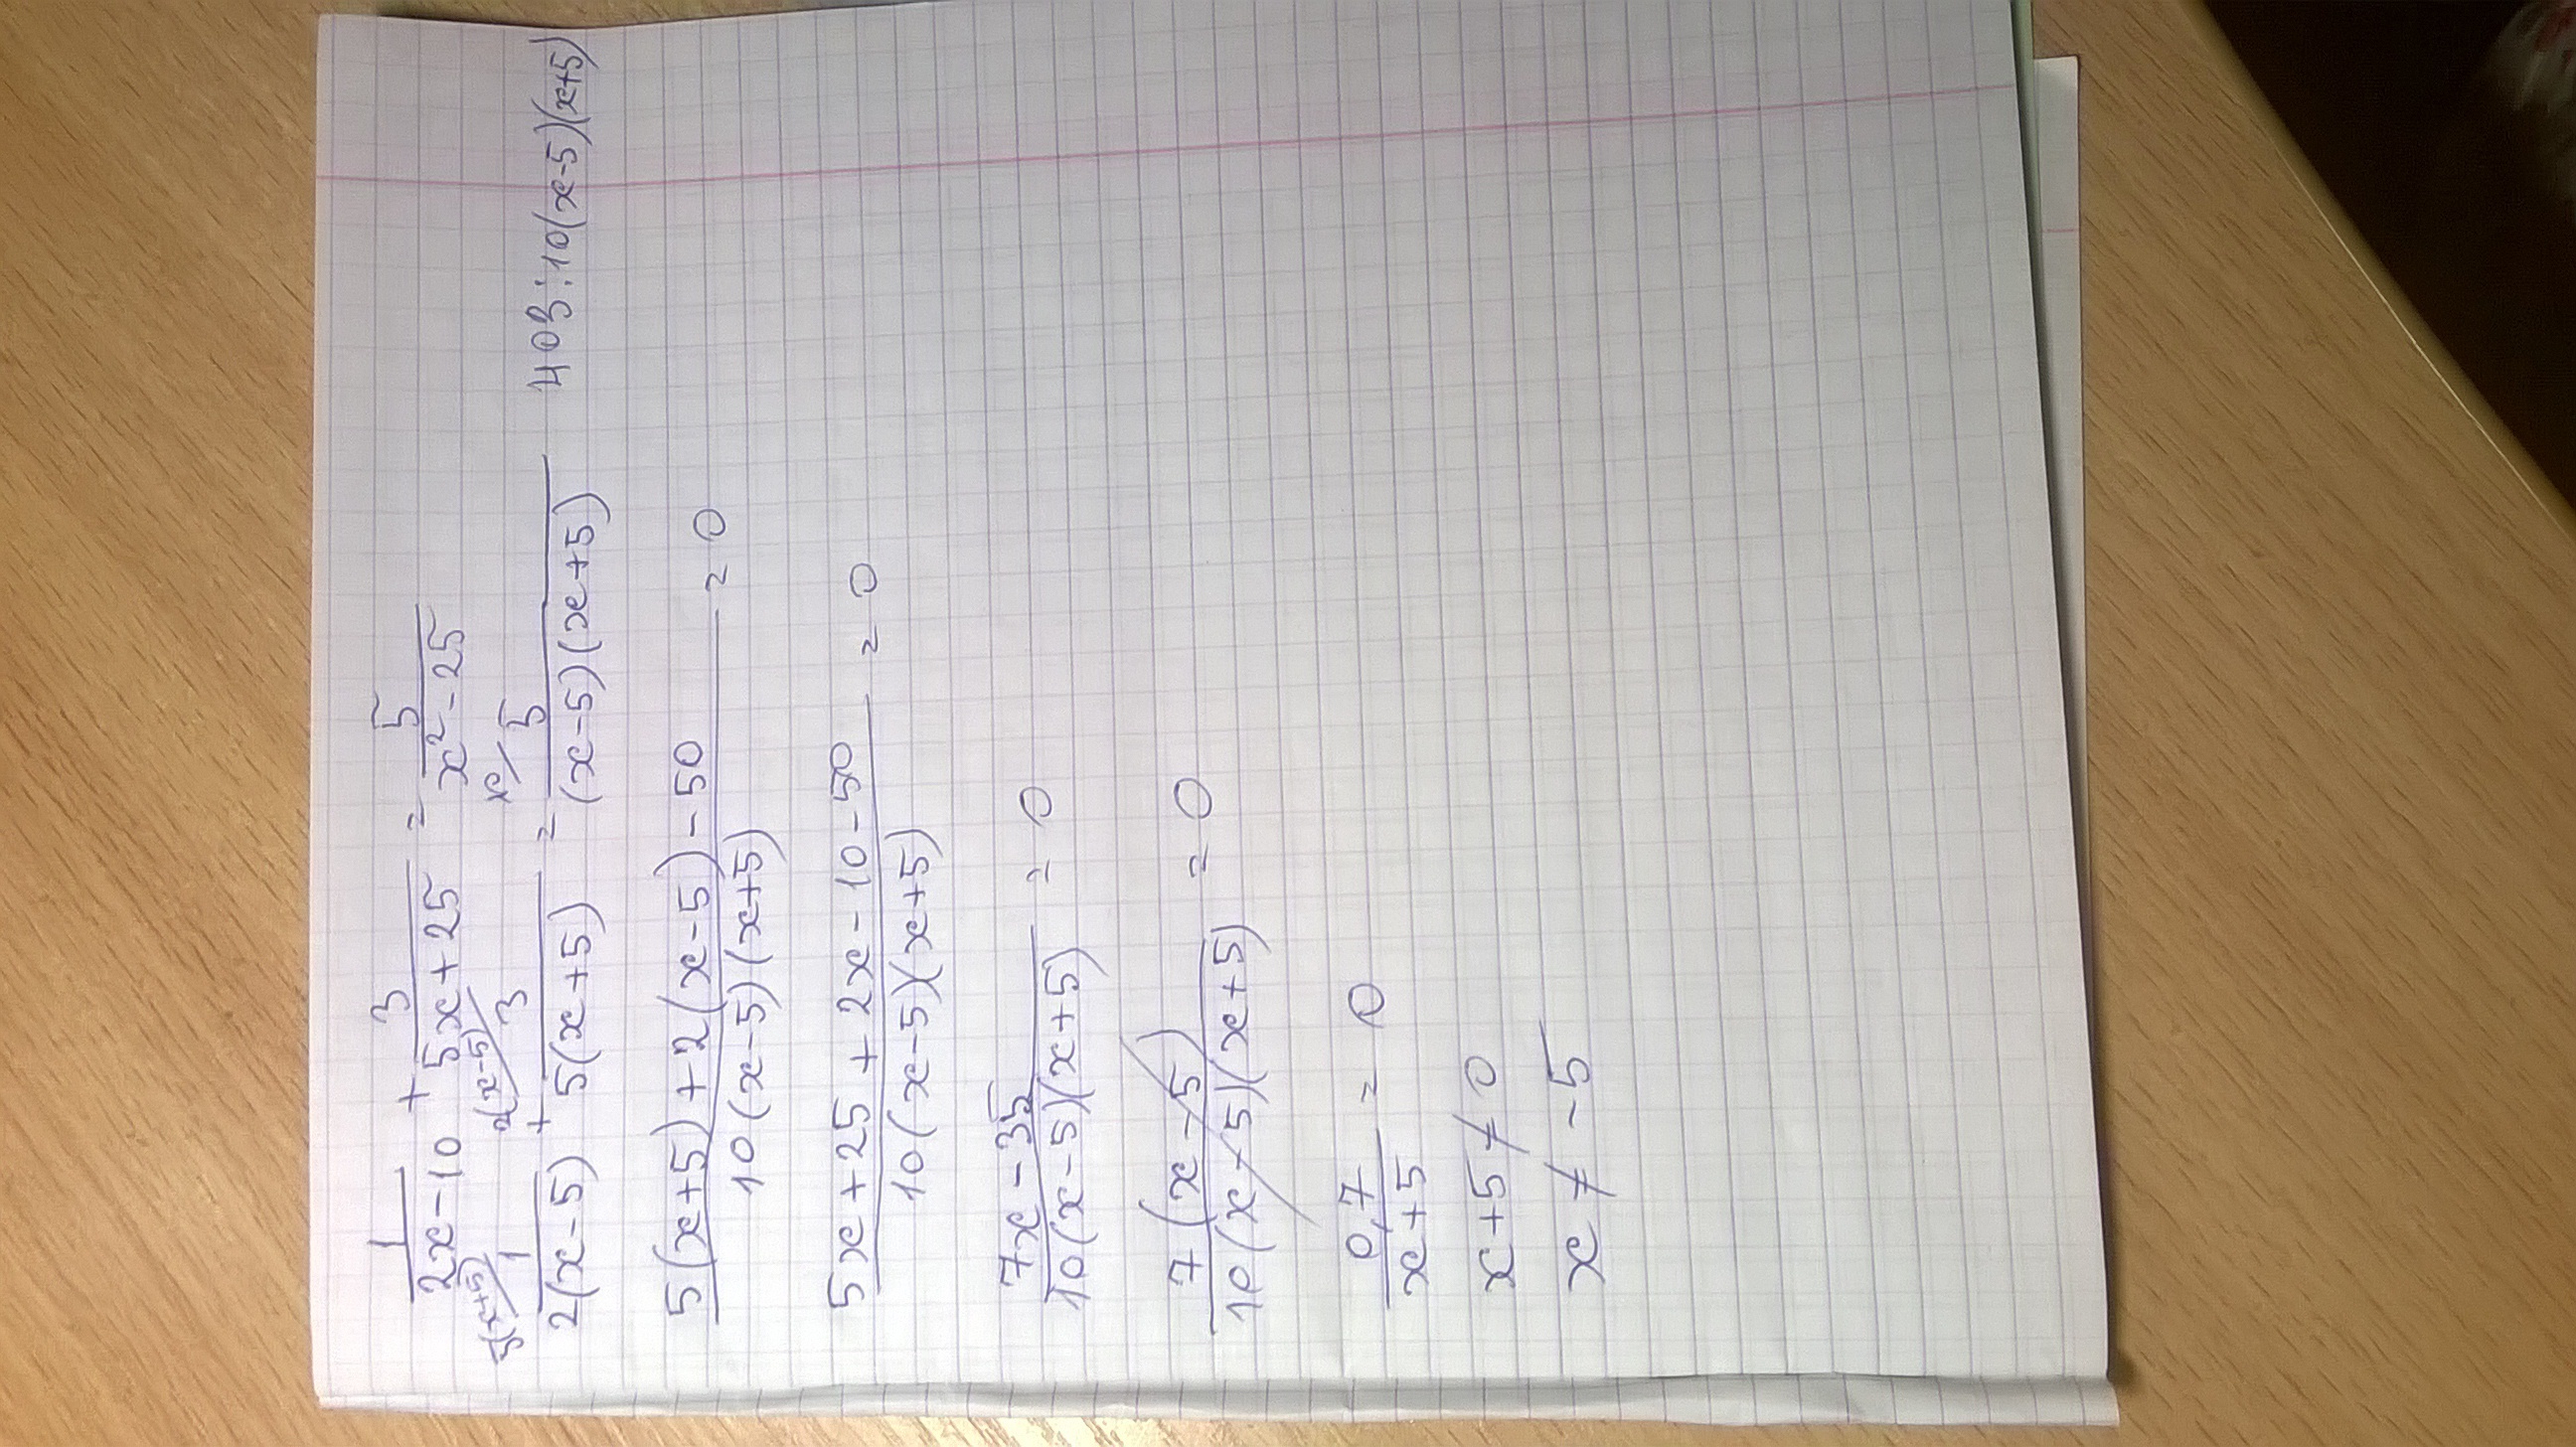 1/(2x-10) + 3/(5x+25) = 5/(x²-25)
5(x+5)/ 1/(2(x-5)) + 2(x-5)/ 3/(5(x+5)) = 5/((x-5)(x+5)) ЧОЗ: 10(x-5)(x+5)
(5(x+5)+2(x-5)-50)/(10(x-5)(x+5)) = 0
(5x+25+2x-10-50)/(10(x-5)(x+5)) = 0
(7x-35)/(10(x-5)(x+5)) = 0
7(x-5)/(10(x-5)(x+5)) = 0
0,7/(x+5) = 0
x+5≠0
x≠-5